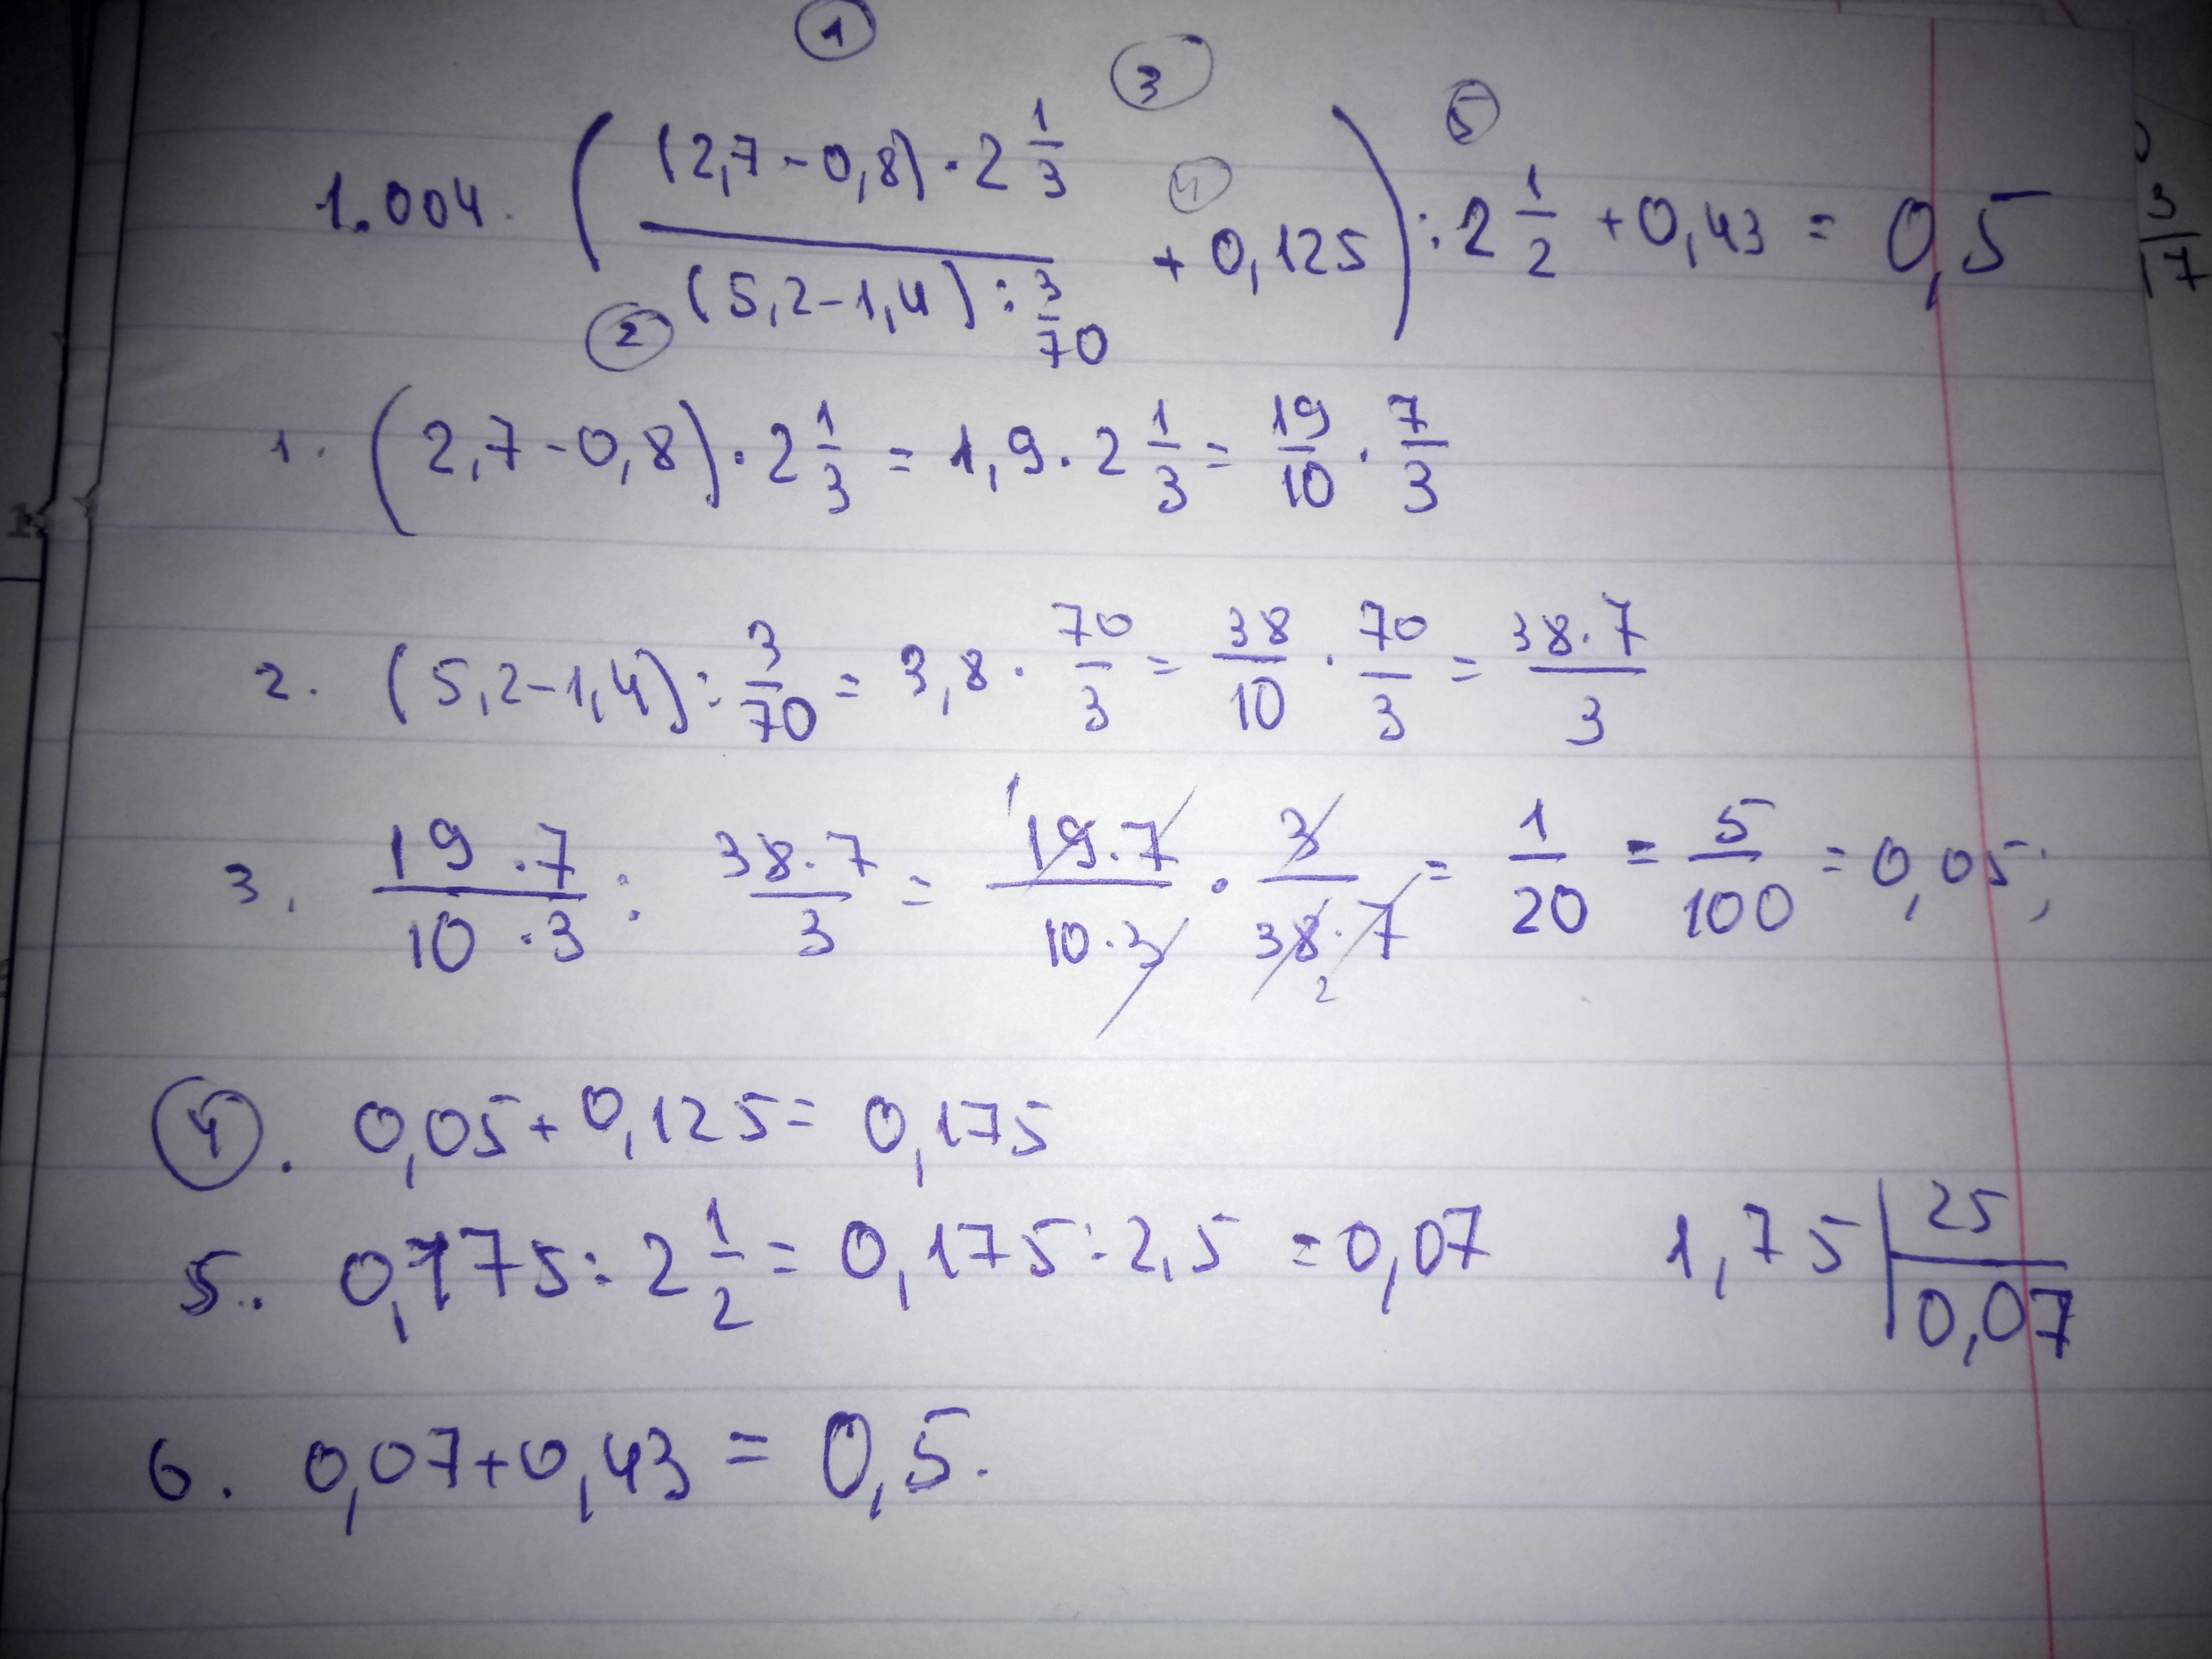 1
3
5
1.004. ( (2,7-0,8)·2 1/3 / (5,2-1,4):3/70 + 0,125 ) : 2 1/2 + 0,43 = 0,5
4
2
1. (2,7-0,8)·2 1/3 = 1,9·2 1/3 = 19/10 · 7/3
2. (5,2-1,4):3/70 = 3,8·70/3 = 38/10 · 70/3 = 38·7/3
3. 19·7/10·3 : 38·7/3 = 19·7/10·3 · 3/38·7 = 1/20 = 5/100 = 0,05;
1
2
4. 0,05+0,125= 0,175
5. 0,175:2 1/2 = 0,175:2,5 =0,07
1,75 | 25
0,07
6. 0,07+0,43 = 0,5.
3
17